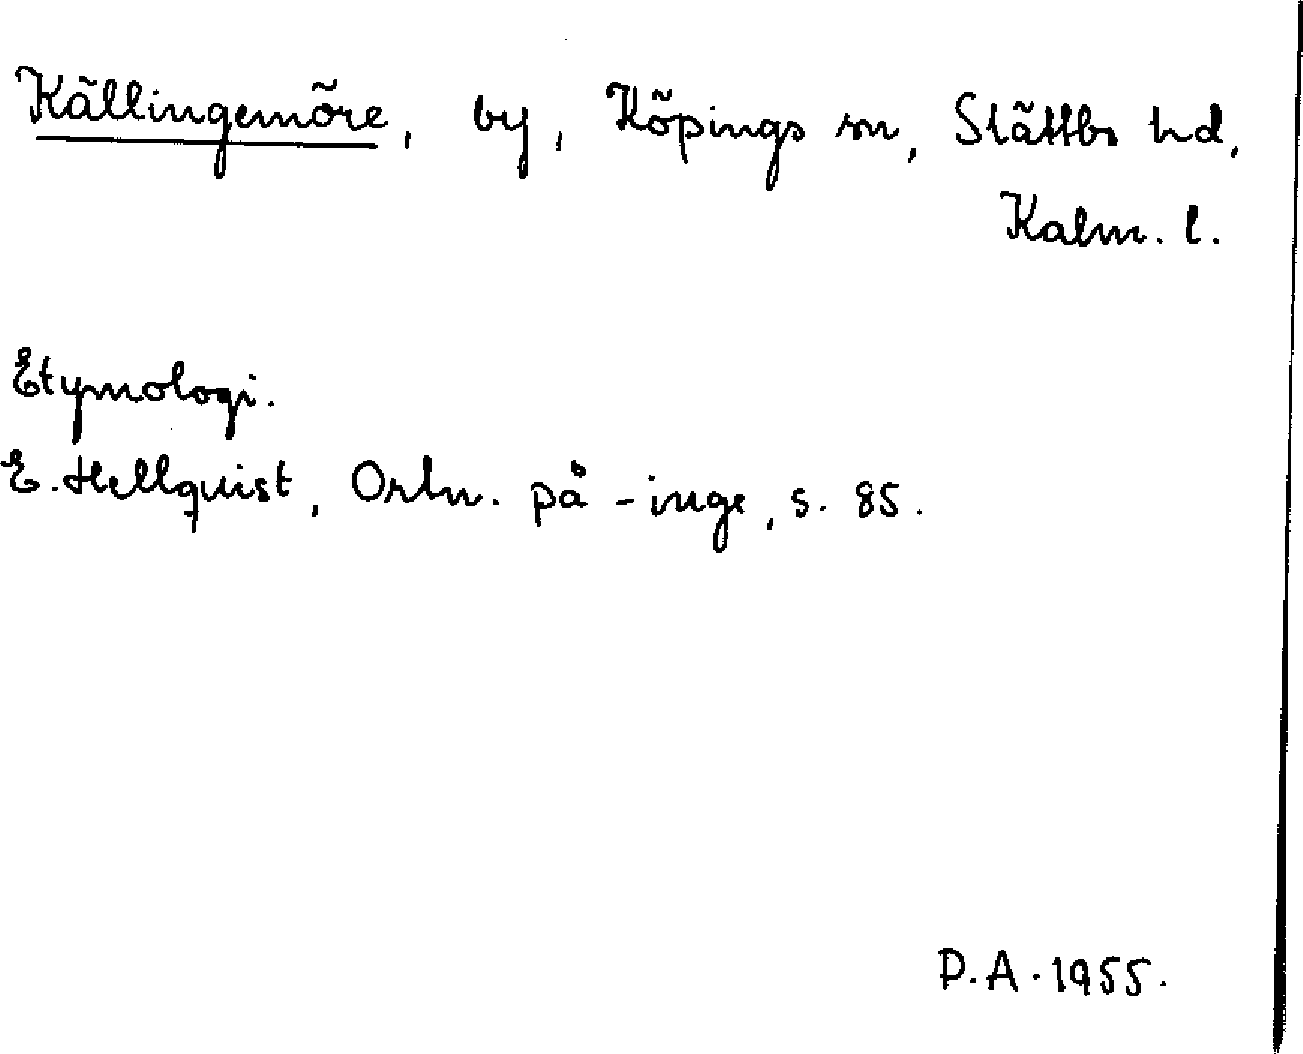 Källingemöre, by, Köpings sn, Slättbo hd,
Kalm. l.
Etymologi.
E. Hellquist, Ortn. på -inge, s. 85.
P.A. 1955.